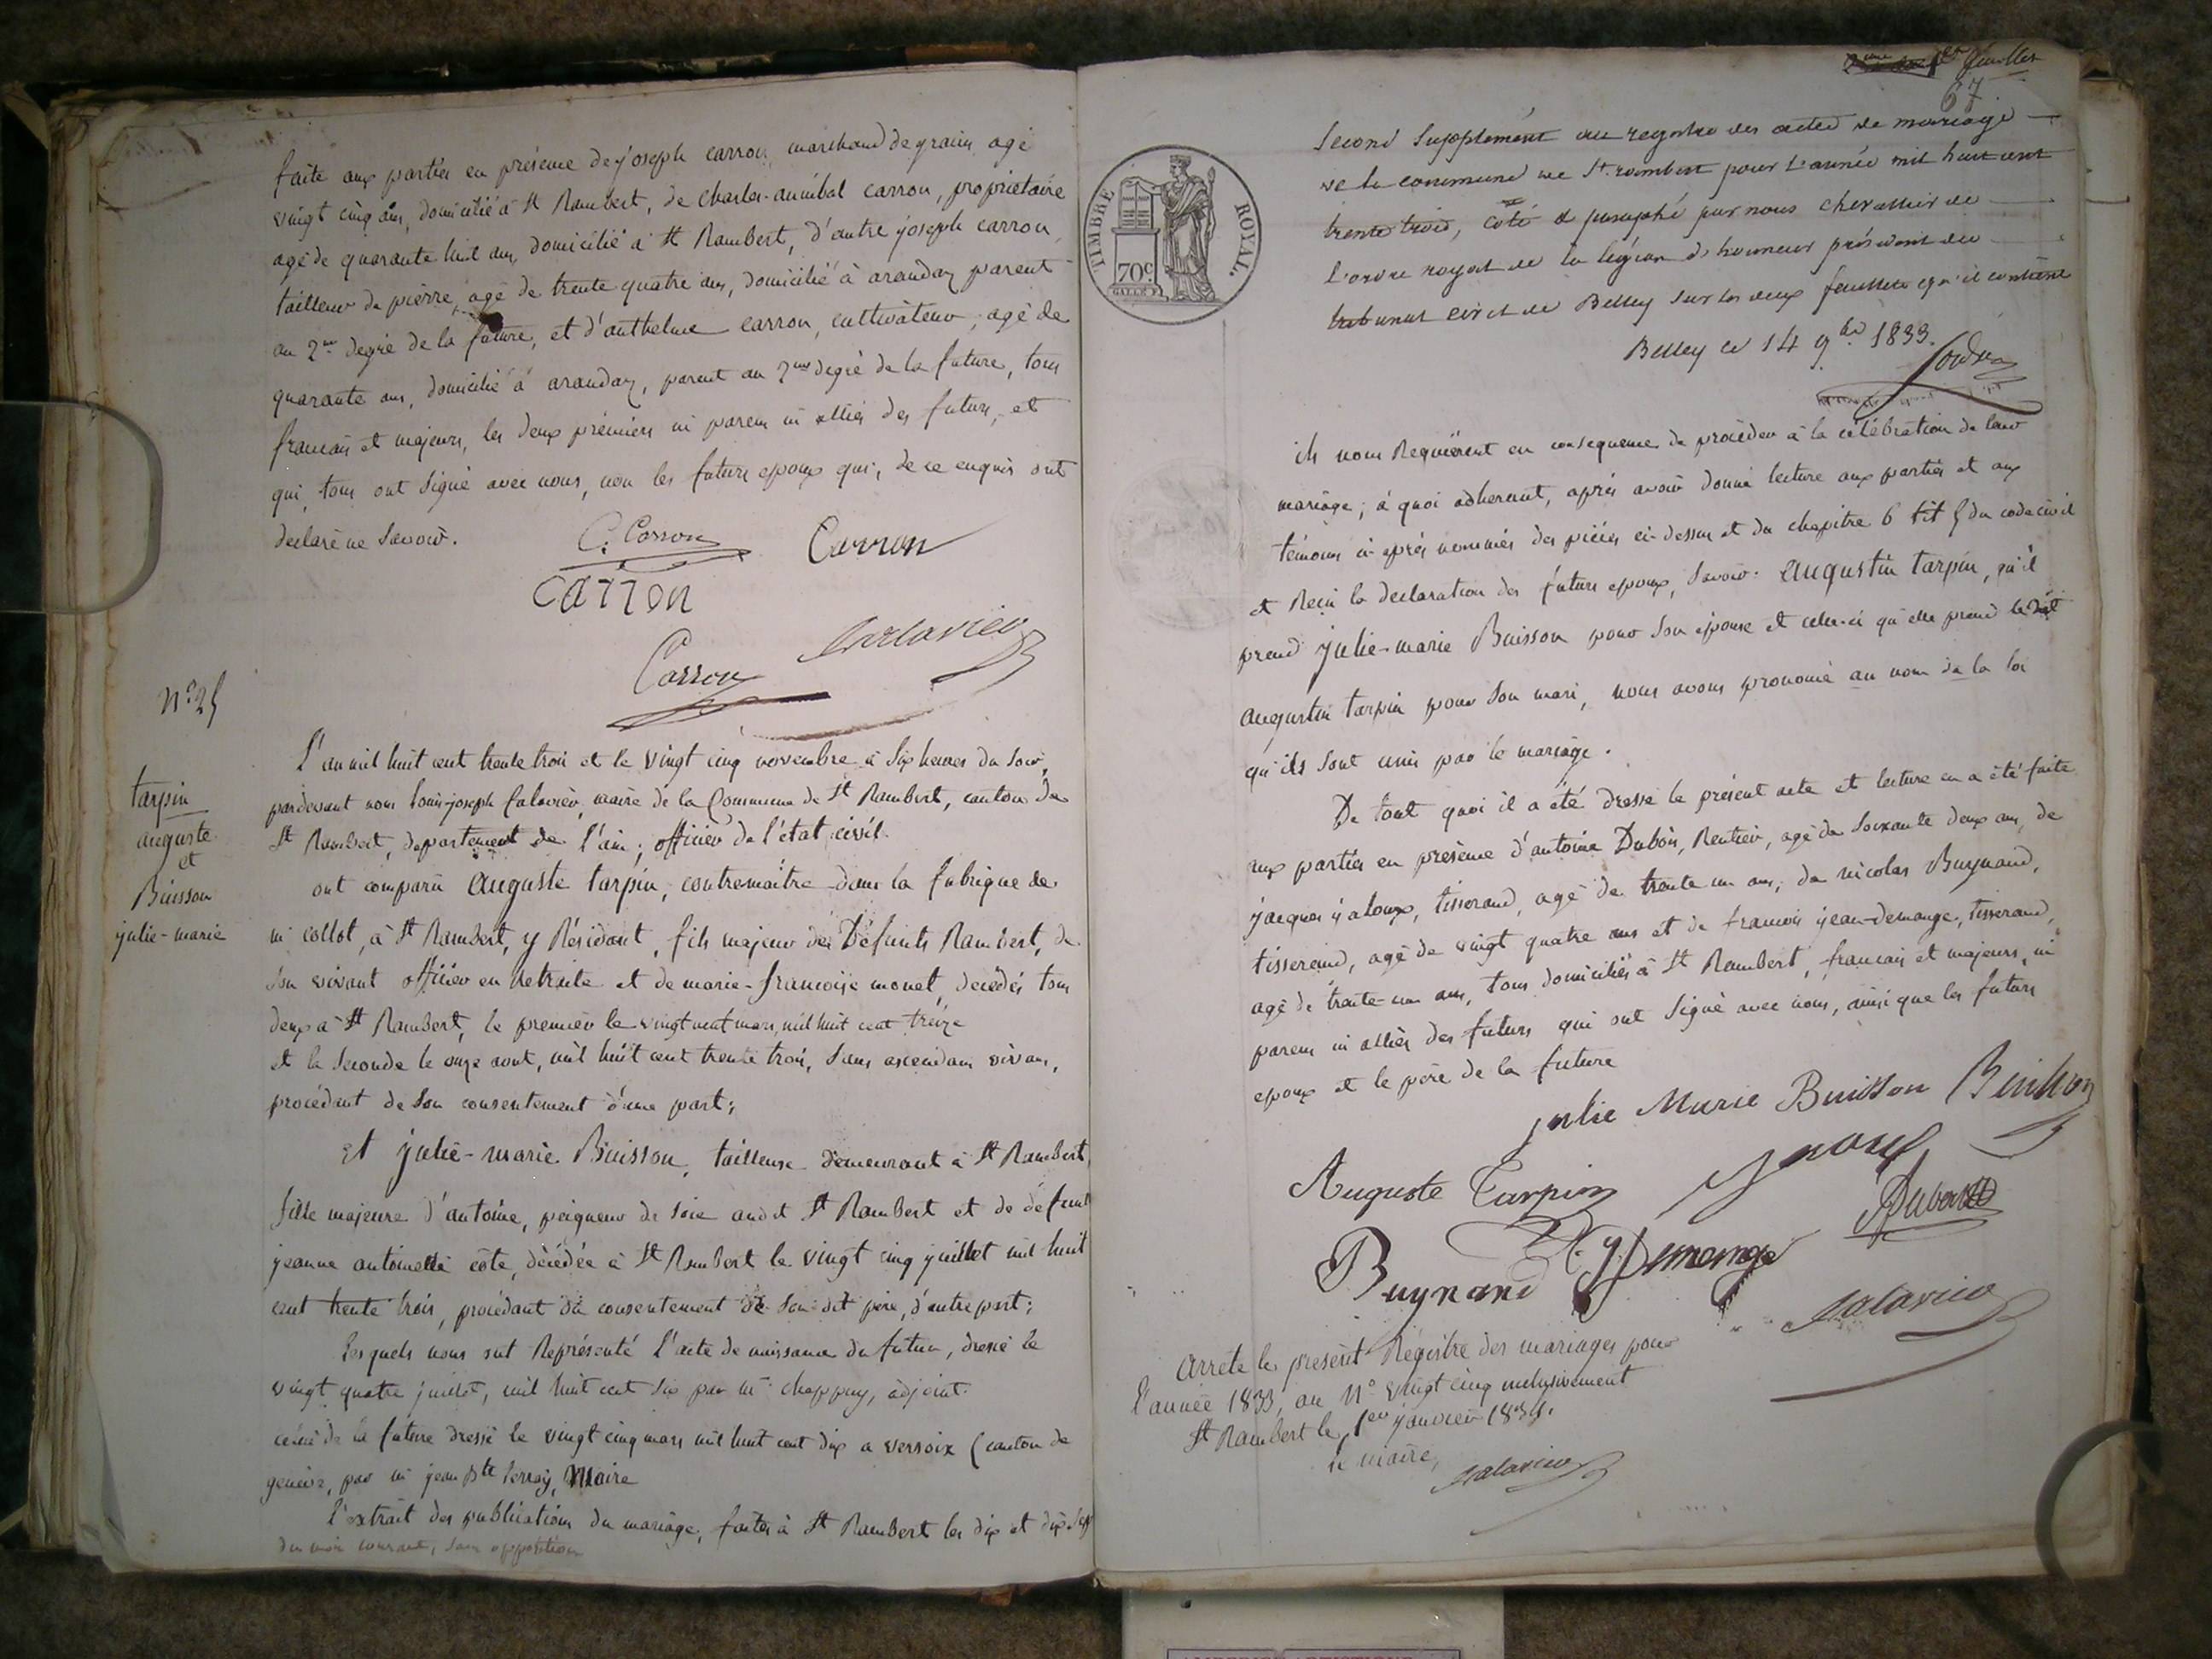 faite aux parties en présence de joseph carron, marchand de grains, agé
vingt cinq ans, domicilié à St Rambert, de charles-annibal carron, propriétaire
agé de quarante huit ans, domicilié à St Rambert, d'autre joseph carron,
tailleur de pierre, agé de trente quatre ans, domicilié à arandaz parent
au 2me degré de la future, et d'anthelme carron, cultivateur, agé de
quarante ans, domicilié à arandaz, parent au 2me degré de la future, tous
francais et majeurs, les deux prémiers ni parens ni alliés des futurs, et
qui, tous ont signé avec nous, non les futurs epoux qui, de ce enquis ont
declaré ne savoir.
C. Carron
Carron
carron
Carron
N° 25
tarpin
auguste
et
Buisson
julie-marie
L'an mil huit cent trente trois et le vingt cinq novembre à six heures du soir,
pardevant nous louis-joseph, maire de la Commune de St Rambert, canton de
St Rambert, departement de l'ain, officier de l'état civil.
ont comparu auguste tarpin, contremaitre dans la fabrique de
mr collot, à St Rambert, y Résidant, fils majeur des Défunts Rambert, de
son vivant officier en retraite et de marie-francoise monet, decédés tous
deux à St Rambert, le premier le vingt neuf mars, mil huit cent treize
et la seconde le onze aout, mil huit cent trente trois, sans ascendans vivans,
procédant de son consentement d'une part;
et julie-marie Buisson, tailleuse demeurant à St Rambert,
fille majeure d'antoine, peigneur de soie audit St Rambert et de défunte
jeanne antoinette côte, décédée à St Rambert le vingt cinq juillet mil huit
cent trente trois, procédant du consentement de son dit père, d'autre part;
lesquels nous ont Représenté l'acte de naissance du futur, dressé le
vingt quatre juillet, mil huit cent six par mr chappuy, adjoint.
celui de la future dressé le vingt cinq mars mil huit cent dix a versoix (canton de
genève, par mr jean Bte, Maire
l'extrait des publications du mariage, faites à St Rambert les dix et dix sept
du mois courant, sans opposition
1er feuillet
67
TIMBRE ROYAL.
70c
Second Supplément au registre des actes de mariage
de la commune de St. rambert pour L'année mil huit cent
trente trois, coté & paraphé par nous chevalier de
l'ordre royal de la légion d'honneur président du
tribunal civil de Belley sur les deux feuillets qu'il contient
Belley le 14 9bre 1833.
ils nous Requièrent en consequence de procéder à la célébration de leur
mariage; à quoi adherant, après avoir donné lecture aux parties et aux
témoins ci-après nommés des pièces ci-dessus et du chapitre 6 tit 5 du code civil
et Reçu la declaration des futurs epoux, savoir: augustin tarpin, qu'il
prend julie-marie Buisson pour son épouse et celle-ci qu'elle prend ledit
augustin tarpin pour son mari, nous avons prononcé au nom de la loi
qu'ils sont unis par le mariage.
De tout quoi il a été dressé le présent acte et lecture en a été faite
aux parties en présence d'antoine Dubois, Rentier, agé de soixante deux ans, de
jacques jaloux, tisserand, agé de trente un ans, de nicolas Buynand,
tisserand, agé de vingt quatre ans et de francois jean-demange, tisserand,
agé de trente-un ans, tous domiciliés à St Rambert, francais et majeurs, ni
parens ni alliés des futurs qui ont signé avec nous, ainsi que les futurs
epoux et le père de la future
julie Marie Buisson Buisson
Auguste Tarpin
Dubois
Buynand
Demenge
Arrêté le présent Régistre des mariages pour
l'année 1833, au N° vingt cinq inclusivement
St Rambert le, 1er janvier 1834.
le maire,